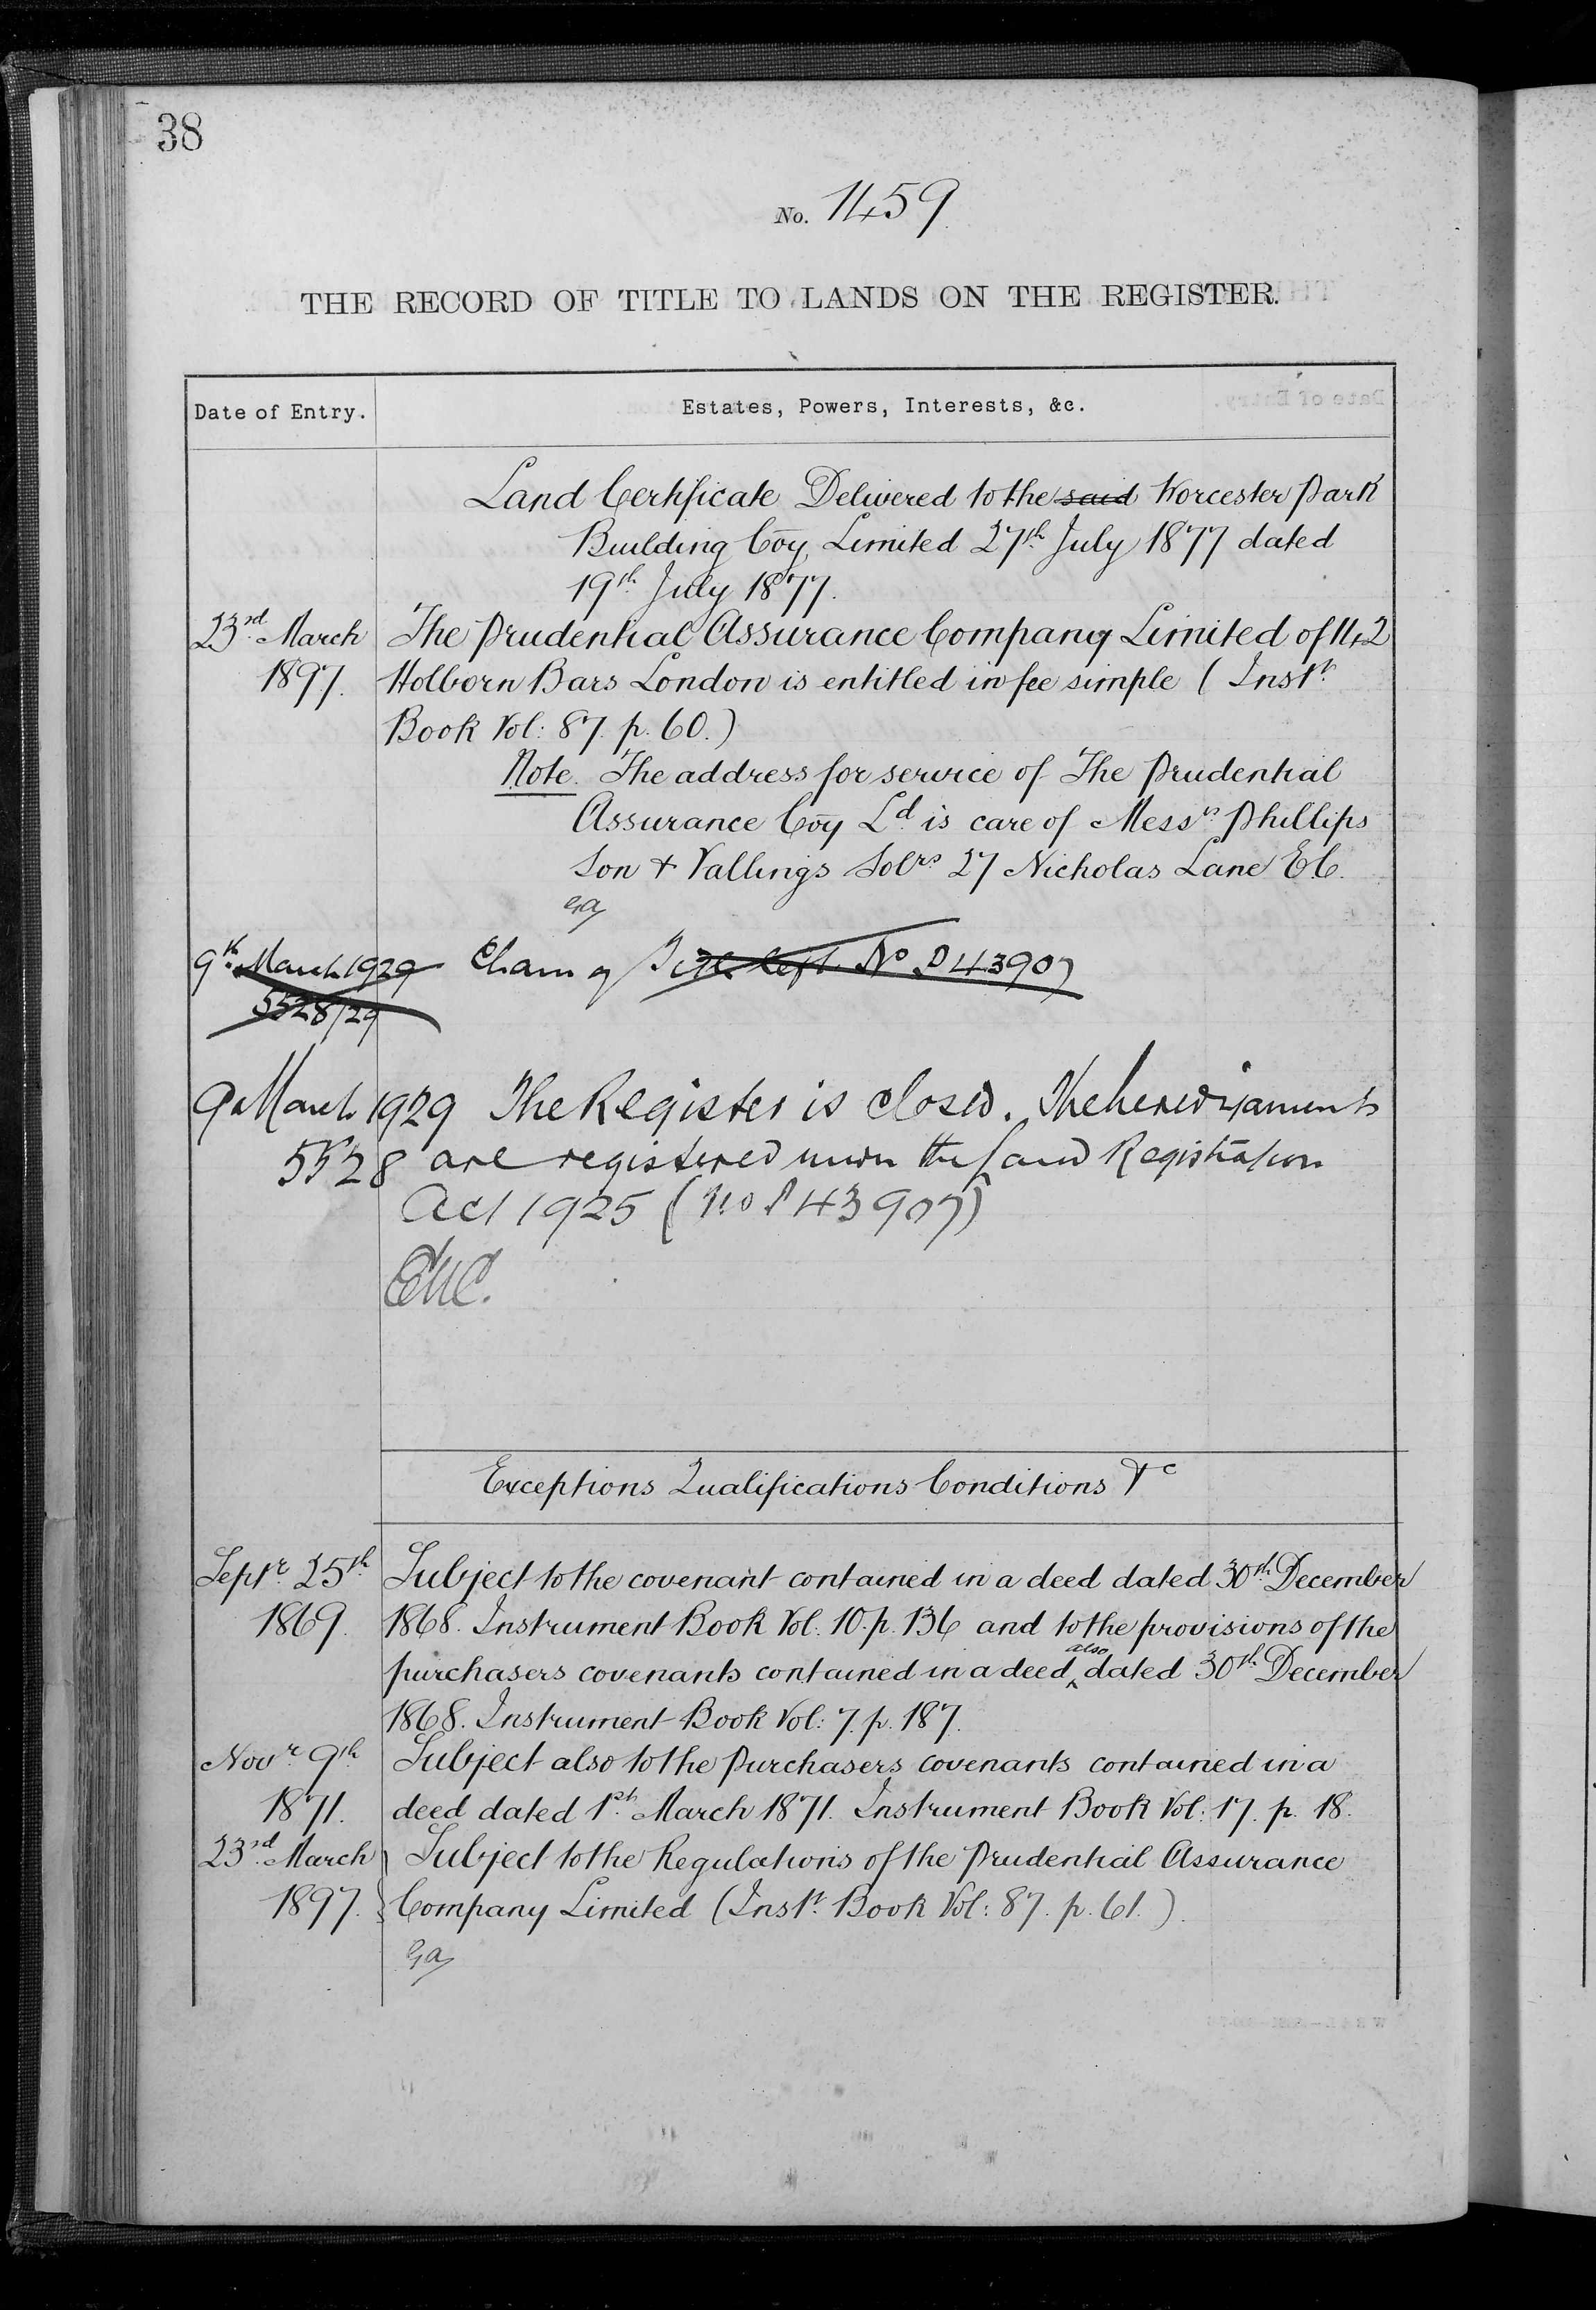 38
No. 1459
THE RECORD OF TITLE TO LANDS ON THE REGISTER.
Date of Entry.
Estates, Powers, Interests, &c.
Land Certificate Delivered to the said Worcester Park
Building Coy Limited 27th July 1877 dated
19th July 1877.
23rd March The Prudential Assurance Company Limited of 142
1897. Holborn Bars London is entitled in fee simple (Inst
Book Vol: 87. p. 60.)
Note. The address for service of The Prudential
Assurance Coy Ld is care of Messrs Phillips
Son & Vallings Solrs 27 Nicholas Lane E.C.
9th March 1929 No P43907
5528/29
9 March 1929 The Register is closed. The hereditaments
5528 are registered under the Land Registration
Act 1925 (No P43907)
Exceptions Qualifications Conditions &c
Septr 25th Subject to the covenant contained in a deed dated 30th December
1869. 1868. Instrument Book Vol: 10. p. 136 and to the provisions of the
purchasers covenants contained in a deed also dated 30th December
1868. Instrument Book Vol: 7. p. 187.
Novr 9th Subject also to the Purchasers covenants contained in a
1871. deed dated 1st March 1871. Instrument Book Vol: 17. p. 18.
23rd March Subject to the Regulations of the Prudential Assurance
1897. Company Limited (Inst Book Vol: 87. p. 61.)